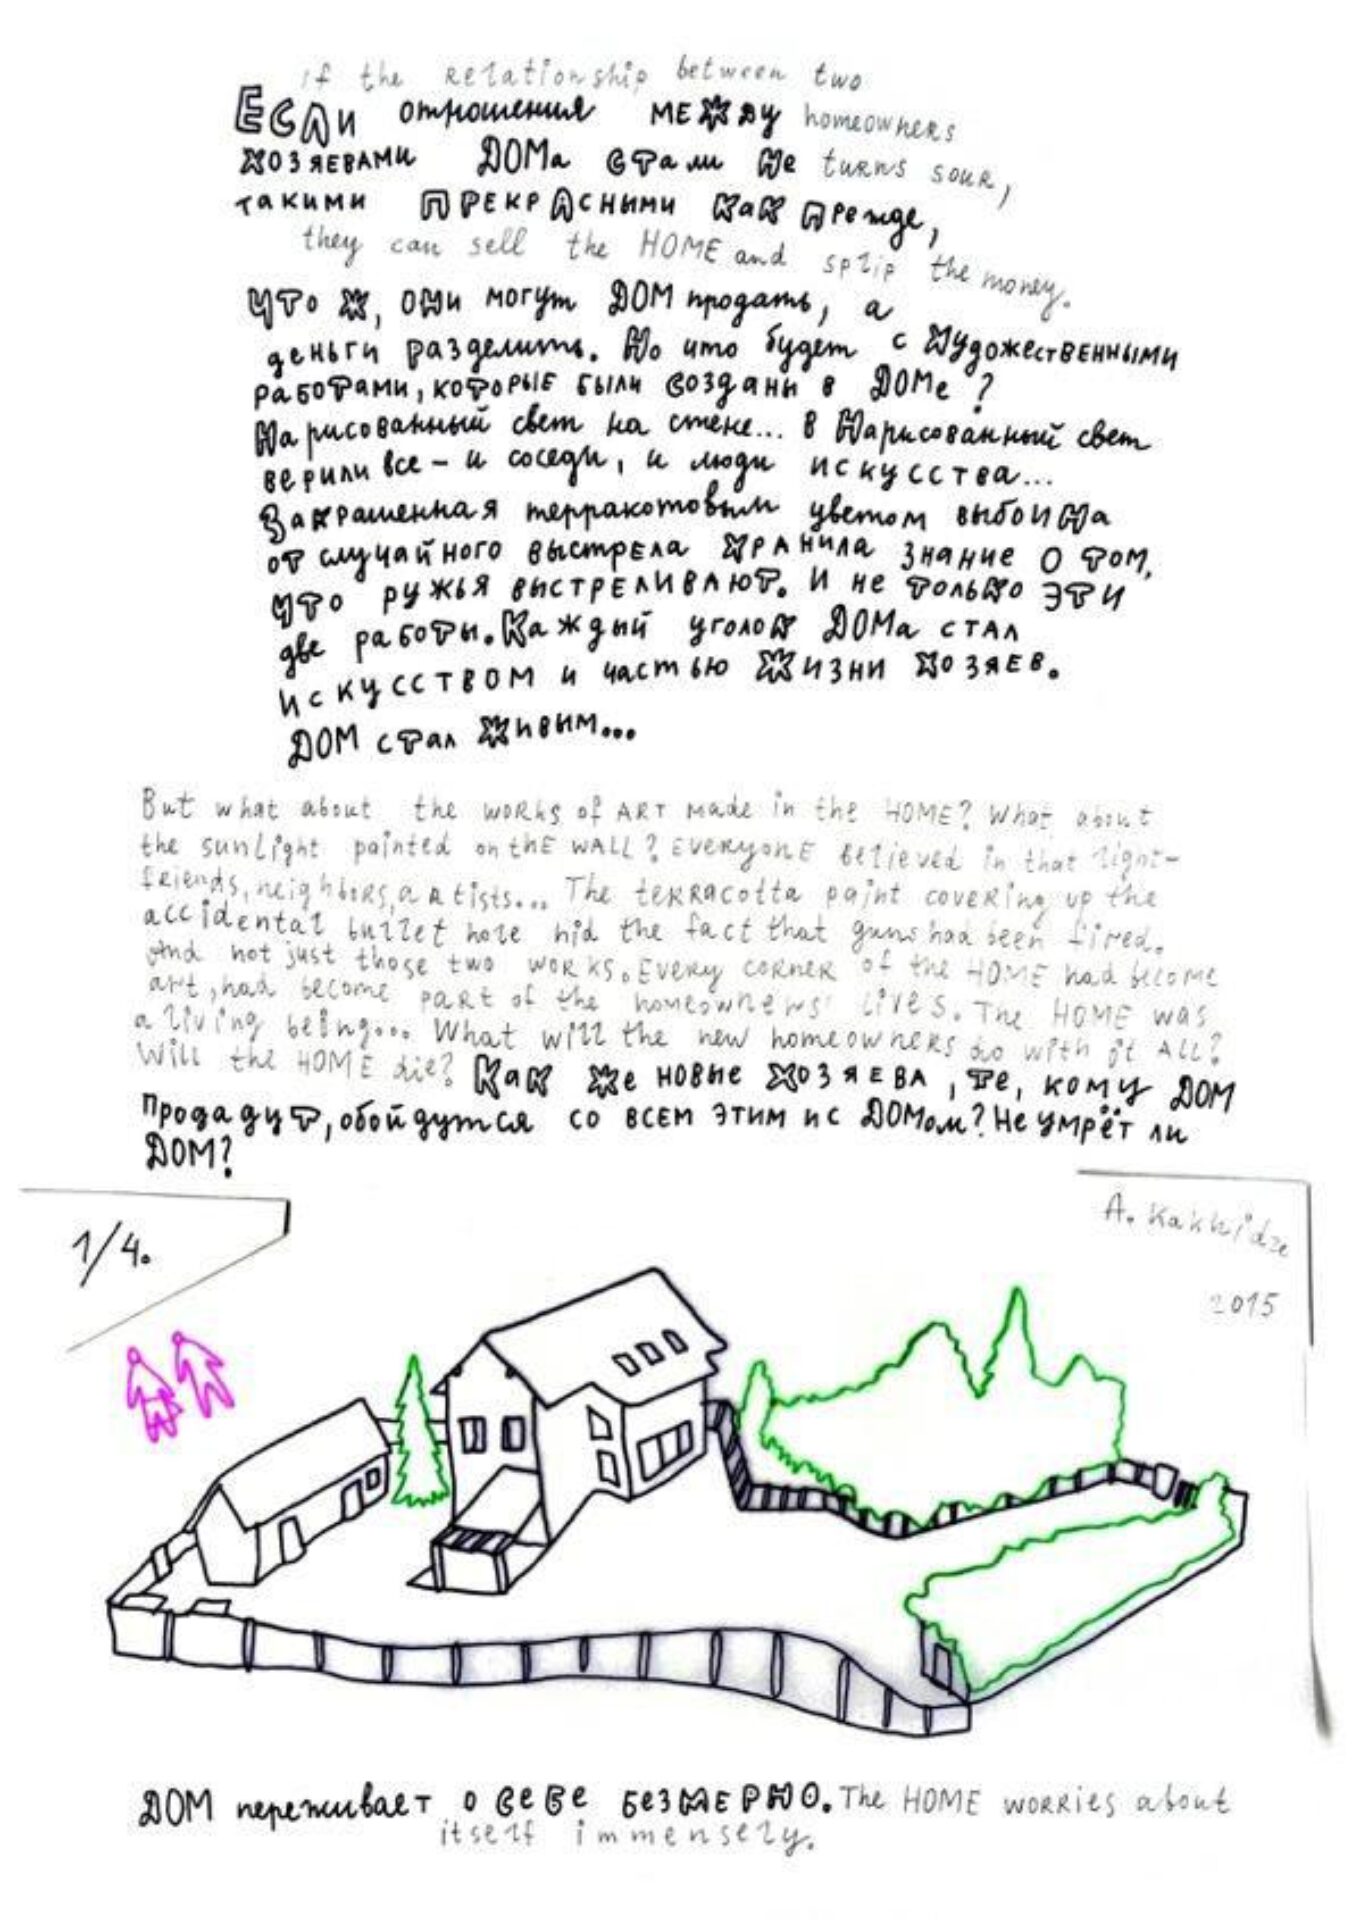 If the Relationship between two
ЕСЛИ отношения МЕЖДУ homeowners
ХОЗЯЕВАМИ ДОМа стали не turns sour,
такими ПРЕКРАСНЫМИ как прежде,
they can sell the HOME and split the money.
Что ж, они могут ДОМ продать, а
деньги разделить. Но что будет с художественными
работами, которые были созданы в ДОМе?
Нарисованный свет на стене... в Нарисованный свет
верили все – и соседи, и люди искусства...
Закрашенная терракотовым цветом выбоина
от случайного выстрела хранила знание о том,
что ружья выстреливают. И не только эти
две работы. Каждый уголок ДОМа стал
искусством и частью жизни хозяев.
ДОМ стал живым...
But what about the works of ART made in the HOME? What about
the sunlight painted on thE WALL? EveryonE believed in that light–
friends, neighbors, artists... The terracotta paint covering up the
accidental bullet hole hid the fact that guns had been fired.
And not just those two works. Every corner of the HOME had become
art, had become part of the homeowners' lives. The HOME was
a living being... What will the new homeowners do with it ALL?
Will the HOME die? Как же новые хозяева, те, кому ДОМ
продадут, обойдутся со всем этим и с ДОМом? Не умрёт ли
ДОМ?
1/4.
A. Kakhidze
2015
ДОМ переживает о себе безмерно. The HOME worries about
itself immensely.